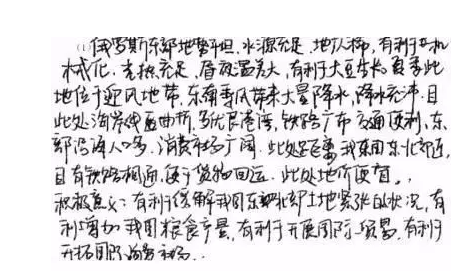 (1)俄罗斯东部地势平坦,水源充足,地广人稀,有利于机
械化。光热充足,昼夜温差大,有利于大豆生长。夏季此
地位于迎风地带,东南季风带来大量降水,降水充沛。且
此处海岸线曲折,多优良港湾,铁路广布交通便利,东
部沿海人口多,消费市场广阔。此处距离我国东北部近,
且有铁路相通,便于货物回运。此处地价便宜。
积极意义:有利于缓解我国东北部土地紧张的状况,有
利增加我国粮食产量,有利于开展国际贸易,有利于
开拓国际消费市场。